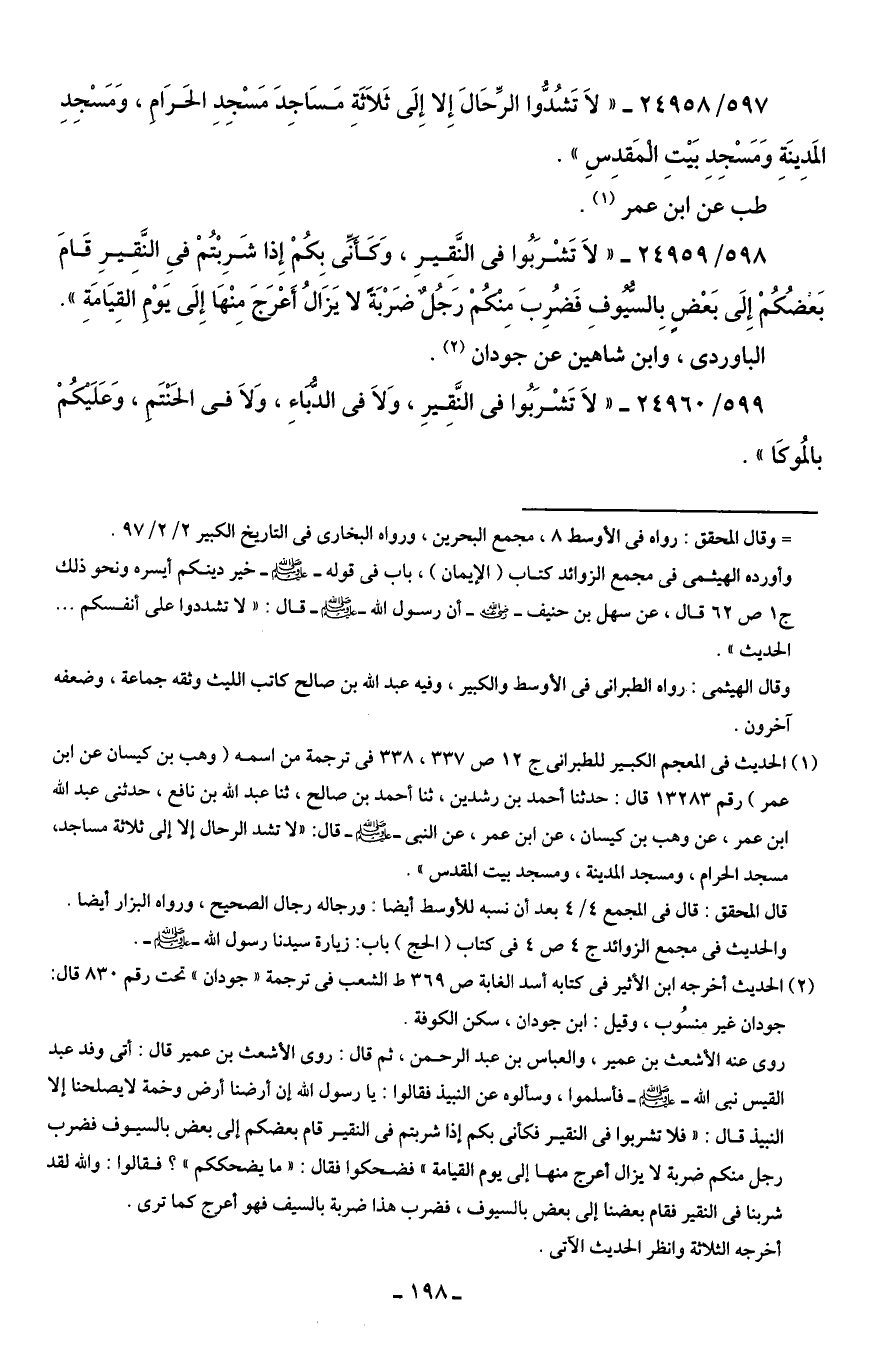 ٢٤٩٥٨/٥٩٧ ـ « لاَ تَشُدُّوا الرِّحَالَ إِلا إِلَى ثَلاَثَةِ مَـسَاجِدَ مَسْجِدِ الحَـرَامِ ، وَمَسْجِدِ
المَدِينَةِ وَمَسْجِدِ بَيْتِ الْمَقدِسِ » .
طب عن ابن عمر (١) .
٢٤٩٥٩/٥٩٨ ـ « لاَ تَشْـرَبُوا فى النَّقِـيـرِ ، وَكَـأَنِّى بِكُمْ إِذا شَـرِبْتُمْ فى النَّقِـيـرِ قَـامَ
بَعْضُكُمْ إِلَى بَعْضٍ بِالسُّيُوفِ فَضُرِبَ مِنْكُمْ رَجُلٌ ضَرْبَةً لا يَزَالُ أَعْرَجَ مِنْهَا إِلَى يَوْمِ القِيَامَةِ ».
الباوردى ، وابن شاهين عن جودان (٢) .
٢٤٩٦٠/٥٩٩ ـ « لاَ تَشْـرَبُوا فى النَّقِيرِ ، وَلاَ فى الدُّبَّاءِ ، وَلاَ فـى الحَنْتَمِ ، وَعَلَيْكُمْ
بالْمُوكَا » .
= وقال المحقق : رواه فى الأوسط ٨ ، مجمع البحرين ، ورواه البخارى فى التاريخ الكبير ٢/ ٢/ ٩٧ .
وأورده الهيثـمى فى مجمع الزوائد كتـاب ( الإيمان ) ، باب فى قوله ـ ﷺ ـ خير دينـكم أيسره ونحو ذلك
ج١ ص ٦٢ قـال ، عن سهل بن حنيف ـ رضي الله عنه ـ أن رسـول الله ـ ﷺ ـ قـال : « لا تشددوا على أنفـسكم ...
الحديث » .
وقال الهيثمى : رواه الطبرانى فى الأوسط والكبير ، وفيه عبد الله بن صالح كاتب الليث وثقه جماعة ، وضعفه
آخرون .
(١) الحديث فى المعجم الكبـير للطبرانى ج ١٢ ص ٣٣٧ ، ٣٣٨ فى ترجمة من اسمـه ( وهب بن كيسان عن ابن
عمر ) رقم ١٣٢٨٣ قال : حدثنا أحمد بن رشدين ، ثنا أحمد بن صالح ، ثنا عبد الله بن نافع ، حدثنى عبد الله
ابن عمر ، عن وهب بن كيسان ، عن ابن عمر ، عن النبى ـ ﷺ ـ قال: «لا تشد الرحال إلا إلى ثلاثة مساجد،
مسجد الحرام ، ومسجد المدينة ، ومسجد بيت المقدس » .
قال المحقق : قال فى المجمع ٤/ ٤ بعد أن نسبه للأوسط أيضا : ورجاله رجال الصحيح ، ورواه البزار أيضا .
والحديث فى مجمع الزوائد ج ٤ ص ٤ فى كتاب ( الحج ) باب: زيارة سيدنا رسول الله ـ ﷺ ـ .
(٢) الحديث أخرجه ابن الأثير فى كتابه أسد الغابة ص ٣٦٩ ط الشعب فى ترجمة « جودان » تحت رقم ٨٣٠ قال:
جودان غير منسُوب ، وقيل : ابن جودان ، سكن الكوفة .
روى عنه الأشعث بن عمير ، والعباس بن عبد الرحـمن ، ثم قال : روى الأشعث بن عمير قال : أتى وفد عبد
القيس نبى الله ـ ﷺ ـ فأسلموا ، وسألوه عن النبيذ فقالوا : يا رسول الله إن أرضنا أرض وخمة لايصلحنا إلا
النبيذ قـال : « فلا تشربوا فى النقيـر فكأنى بكم إذا شربتم فى النقيـر قام بعضكم إلى بعض بالسيـوف فضرب
رجل منكم ضربة لا يزال أعرج منهـا إلى يوم القيامة » فضـحكوا فقال : « ما يضحككم » ؟ فـقالوا : والله لقد
شربنا فى النقير فقام بعضنا إلى بعض بالسيوف ، فضرب هذا ضربة بالسيف فهو أعرج كما ترى .
أخرجه الثلاثة وانظر الحديث الآتى .
ـ ١٩٨ ـ